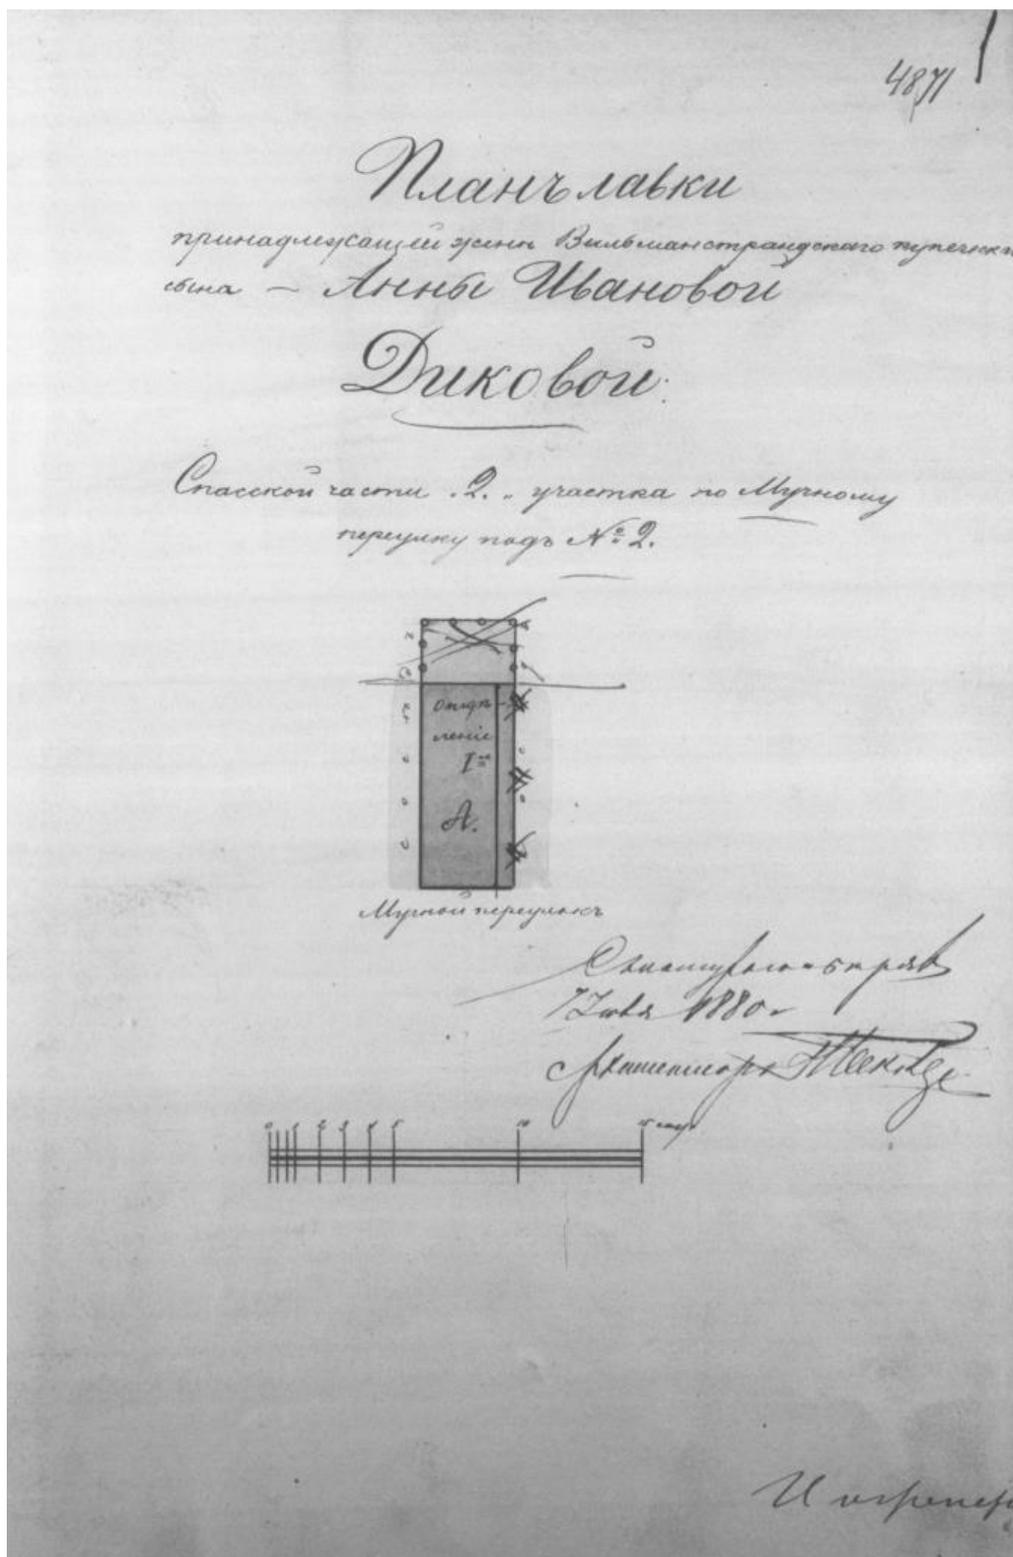 4871
Планъ лавки
принадлежащей жены Вильманстрандскаго купеческ
сына — Анны Ивановой
Диковой.
Спасской части .2. участка по Мучному
переулку подъ № 2.
отдѣ
леніе
I
А.
Мучной переулокъ
7 Іюля 1880 г
Архитекторъ
0 1 2 3 4 5 10 15 саж.